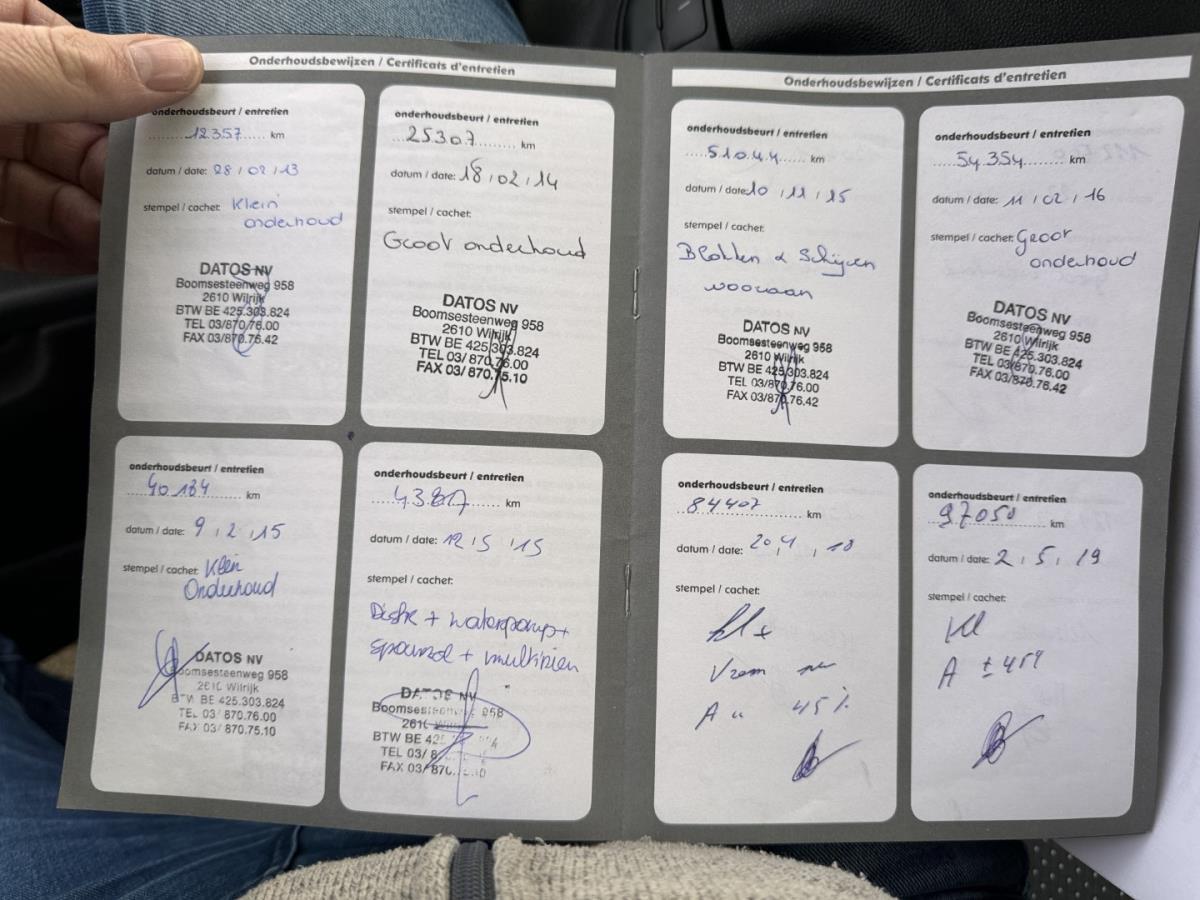 Onderhoudsbewijzen / Certificats d'entretien
onderhoudsbeurt / entretien
12.357 km
datum / date: 28 / 02 / 13
stempel / cachet: Klein
onderhoud
DATOS NV
Boomsesteenweg 958
2610 Wilrijk
BTW BE 425.303.824
TEL 03/870.76.00
FAX 03/870.76.42
onderhoudsbeurt / entretien
25307 km
datum / date: 18 / 02 / 14
stempel / cachet:
Groot onderhoud
DATOS NV
Boomsesteenweg 958
2610 Wilrijk
BTW BE 425.303.824
TEL 03/ 870.76.00
FAX 03/ 870.75.10
onderhoudsbeurt / entretien
40184 km
datum / date: 9 / 2 / 15
stempel / cachet: Klein
Onderhoud
DATOS NV
Boomsesteenweg 958
2610 Wilrijk
BTW BE 425.303.824
TEL 03/ 870.76.00
FAX 03/ 870.75.10
onderhoudsbeurt / entretien
km
datum / date: 12 / 5 / 15
stempel / cachet:
+ waterpomp +
+ multirien
DATOS NV
Boomsesteenweg 958
BTW BE
TEL 03/
FAX 03/ 870.
Onderhoudsbewijzen / Certificats d'entretien
onderhoudsbeurt / entretien
51044 km
datum / date: 10 / 11 / 15
stempel / cachet:
Blokken & Schijven
vooraan
DATOS NV
Boomsesteenweg 958
2610 Wilrijk
BTW BE 425.303.824
TEL 03/870.76.00
FAX 03/870.76.42
onderhoudsbeurt / entretien
54.354 km
datum / date: 11 / 02 / 16
stempel / cachet: Groot
onderhoud
DATOS NV
Boomsesteenweg 958
2610 Wilrijk
BTW BE 425.303.824
TEL 03/870.76.00
FAX 03/870.76.42
onderhoudsbeurt / entretien
84407 km
datum / date: 20 / 4 / 18
stempel / cachet:
A 45%
onderhoudsbeurt / entretien
97050 km
datum / date: 2 / 5 / 19
stempel / cachet:
Kl
A ±